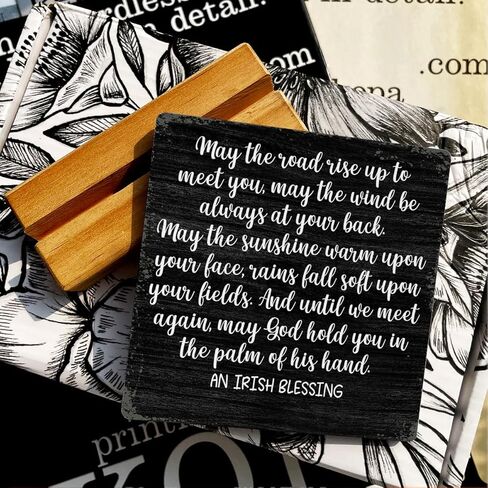 rdless
n detail.
in detail.
.com
kona
May the road rise up to
meet you, may the wind be
always at your back.
May the sunshine warm upon
your face, rains fall soft upon
your fields. And until we meet
again, may God hold you in
the palm of his hand.
AN IRISH BLESSING
print